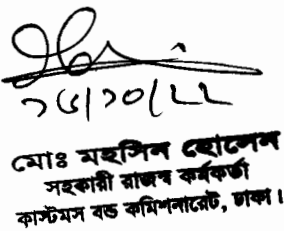 ২৬/১০/২২
মোঃ মহসিন হোসেন
সহকারী রাজস্ব কর্মকর্তা
কাস্টমস বন্ড কমিশনারেট, ঢাকা।